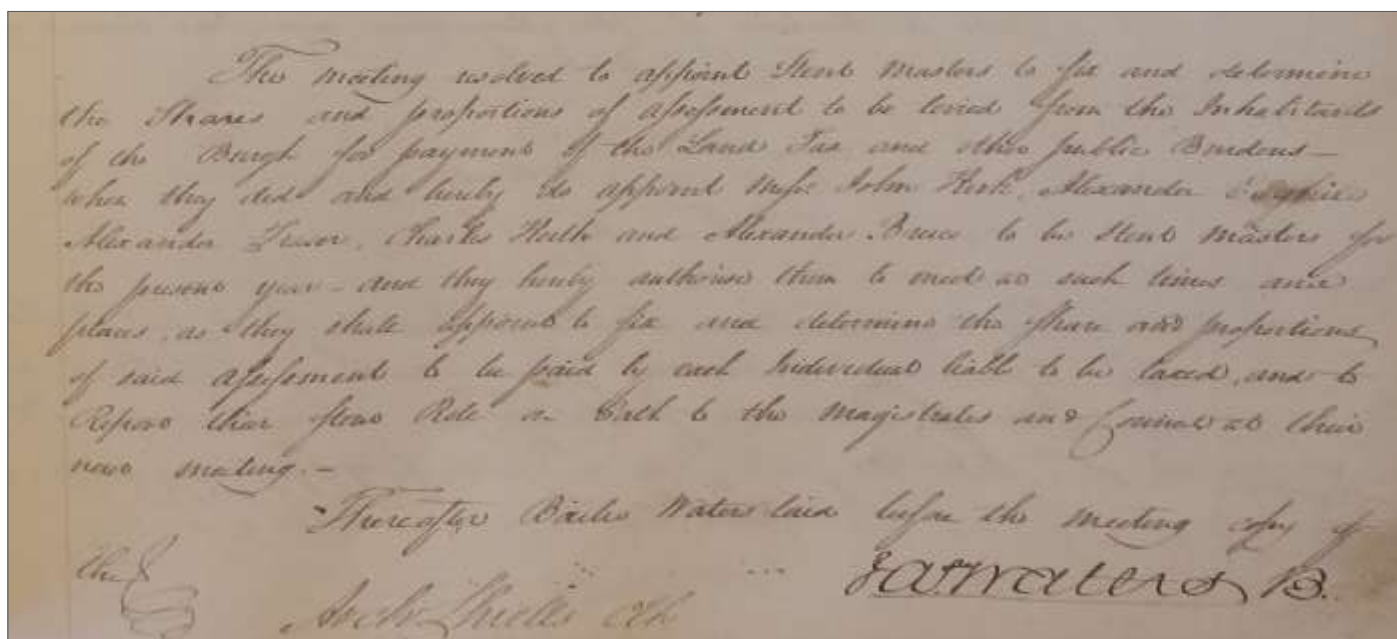 The meeting resolved to appoint Stent Masters to fix and determine
the Shares and proportions of assessment to be levied from the Inhabitants
of the Burgh for payment of the Land Tax and other public Burdens—
when they did and hereby do appoint Messrs John Kirk, Alexander
Alexander Fraser, Charles Keith and Alexander Bruce to be Stent Masters for
the present year – and they hereby authorise them to meet at such times and
places, as they shall appoint to fix and determine the share and proportions
of said assessment to be paid by each Individual liable to be taxed, and to
Report their Stent Role on Oath to the Magistrates and Council at their
next meeting.–
Thereafter Bailie Waters laid before the meeting copy of
the
Waters B.